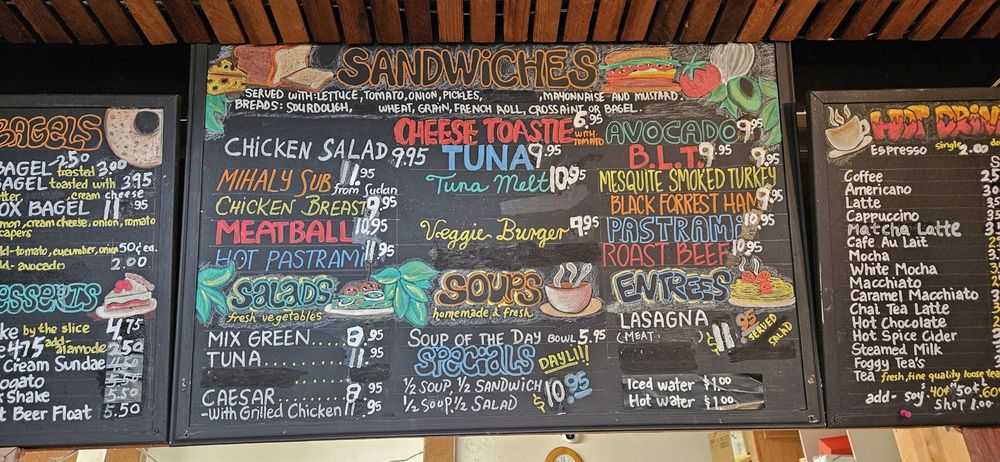 BAGELS
BAGEL 2.50 toasted 3.00
BAGEL toasted with 3.95
cream cheese
OX BAGEL 11.95
mon, cream cheese, onion, tomato
capers
ld-tomato, cucumber, onion 50¢ ea.
ld- avocado 2.00
ESSERTS
ke by the slice 4.75
e 4.75 add-alamode 2.50
Cream Sundae
ogato
Shake 5.50
t Beer Float 5.50
SANDWICHES
SERVED WITH LETTUCE, TOMATO, ONION, PICKLES, MAYONNAISE AND MUSTARD.
BREADS: SOURDOUGH, WHEAT, GRAIN, FRENCH ROLL, CROSSAINT OR BAGEL.
CHICKEN SALAD 9.95
MIHALY SUB 11.95
from Sudan
CHICKEN BREAST 9.95
MEATBALL 10.95
HOT PASTRAMI 11.95
CHEESE TOASTIE 6.95
WITH TOMATO
TUNA 9.95
Tuna Melt 10.95
Veggie Burger 9.95
AVOCADO 9.95
B.L.T. 9.95
MESQUITE SMOKED TURKEY 9.95
BLACK FORREST HAM 9.95
PASTRAMI 10.95
ROAST BEEF 10.95
SALADS
fresh vegetables
MIX GREEN.... 8.95
TUNA.......... 11.95
CAESAR........ 8.95
-With Grilled Chicken 11.95
SOUPS
homemade & fresh
SOUP OF THE DAY BOWL 5.95
SPECIALS DAYLI!!
½ SOUP, ½ SANDWICH
½ SOUP, ½ SALAD
$10.95
ENTREES
LASAGNA $11.95
(MEAT) SERVED SALAD
Iced water $1.00
Hot water $1.00
HOT DRIN
Espresso single 2.00 do
Coffee
Americano
Latte
Cappucino
Matcha Latte
Cafe Au Lait
Mocha
White Mocha
Macchiato
Caramel Macchiato
Chai Tea Latte
Hot Chocolate
Hot Spice Cider
Steamed Milk
Foggy Tea's
Tea fresh, fine quality loose tea
add- soy .40¢ 50¢ .60
SHOT 1.00